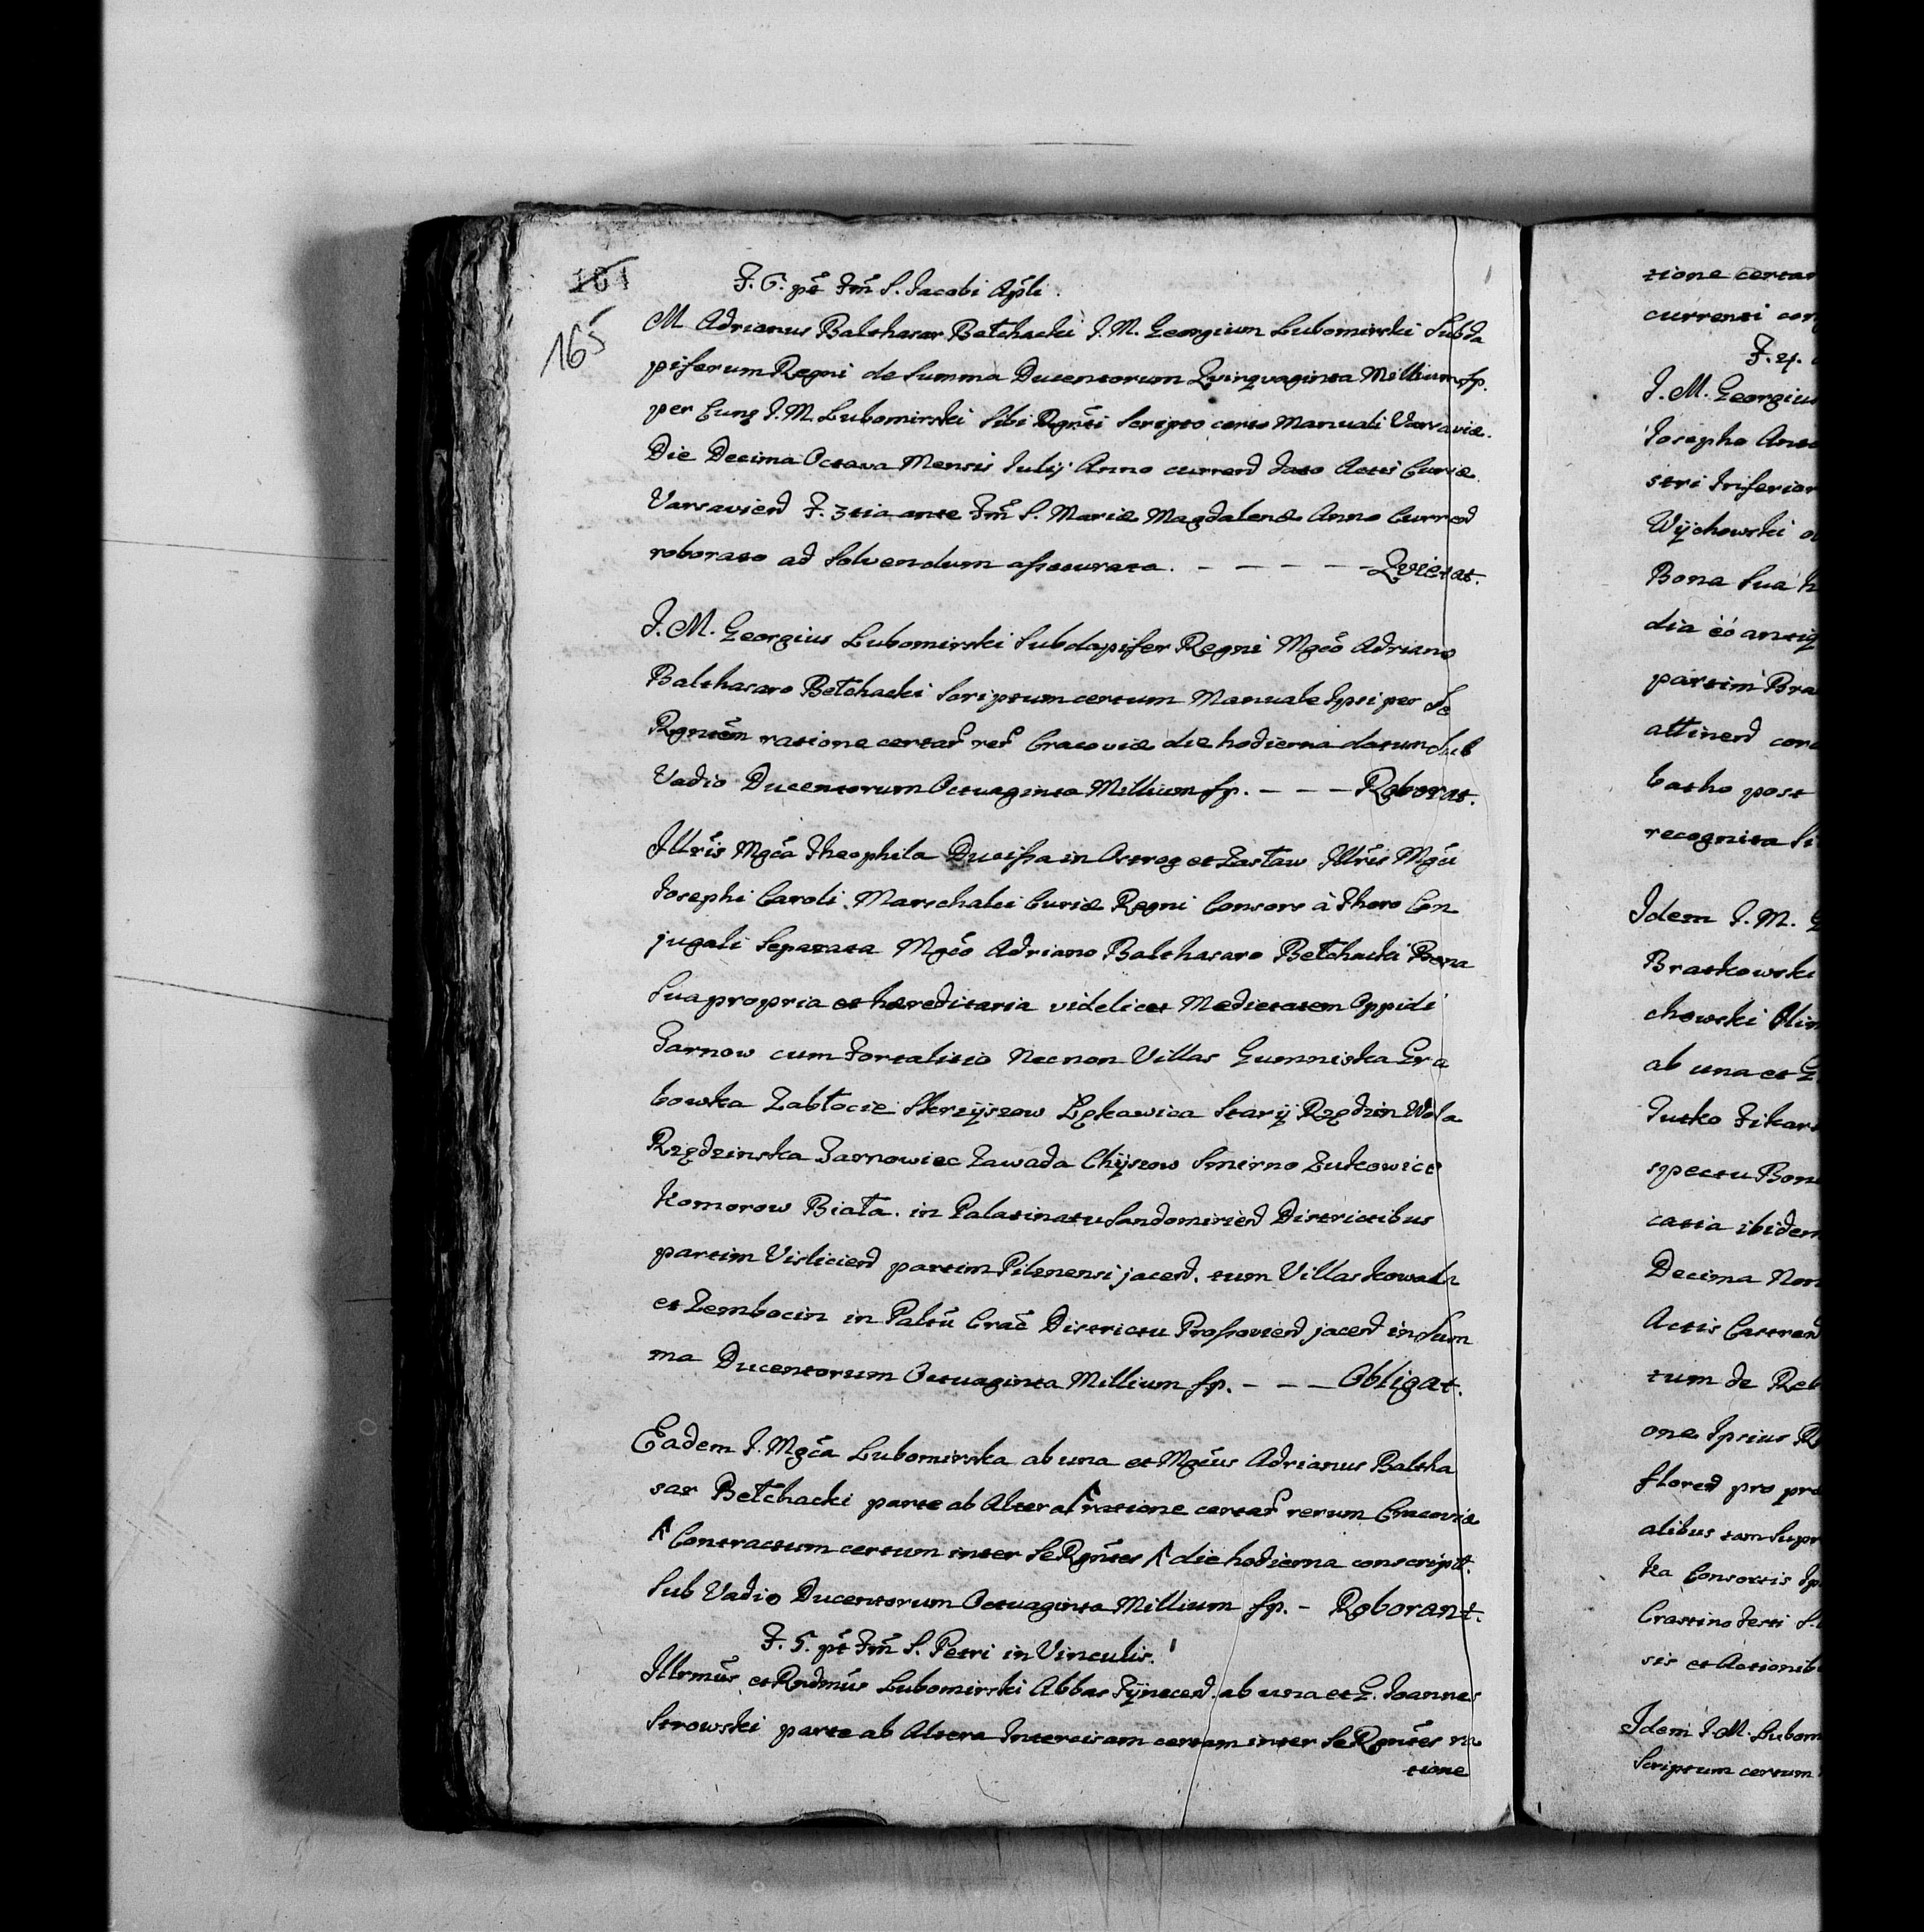 161
165
F. 6. pt Fm S. Jacobi Apli.
M. Adrianus Balthasar Betchacki J. M. Georgium Lubomirski Subda
piferum Regni de Summa Ducentorum Qvinqvaginta Millium fp.
per Eunq J. M. Lubomirski Sibi Rgnti Scripto certo Manuali Varsaviæ.
Die Decima Octava Mensis Julij Anno currend dato Actis Curiæ
Varsaviend F. 3tia ante Fm S. Mariæ Magdalenæ Anno Currend
roborato ad Solvendum assecurata. - - - - - - Qvietat.
J. M. Georgius Lubomirski Subdapifer Regni Mgco Adriano
Balthasaro Betchacki Scriptum certum Manuale Ipsi per Se
Rgntem ratione certar rer Cracoviæ die hodierna datum Sub
Vadio Ducentorum Octuaginta Millium fp. - - - Roborat.
Illris Mgca Theophila Ducissa in Ostrog et Zasław Illris Mgci
Josephi Caroli Marschalci Curiæ Regni Consors à Thoro Con
jugali Separata Mgco Adriano Balthasaro Betchacki Bona
Sua propria et hæreditaria videlicet Medietatem Oppidi
Tarnow cum Fortalitio Necnon Villas Gumniska Gra
bowka Zabłocie Skrzyszow Łękawica Stary Rzędzin Wola
Rzędzinska Tarnowiec Zawada Chyszow Smirno Zukowice
Komorow Biała. in Palatinatu Sandomiriend Districtibus
partim Visliciend partim Pilznensi jacend. tum Villas Kowal
et Zembocin in Paltu Crac Districtu Proszoviend jacend in Sum
ma Ducentorum Octuaginta Millium fp. - - - Obligat.
Eadem J. Mgca Lubomirska ab una et Mgcus Adrianus Baltha
sar Betchacki parte ab Altera ratione certar rerum Cracoviæ
Contractum certum inter Se Rgntes die hodierna conscript.
Sub Vadio Ducentorum Octuaginta Millium fp. - Roborant.
F. 5. pt Fm S. Petri in Vinculis.
Illrmus et Rndmus Lubomirski Abbas Tynecend. ab una et G. Joannes
Strowski parte ab Altera Intercisam certam inter Se Rgntes ra
tione
tione certar
F. 4.
J. M. Georgius
Wychowski
Bona Sua
dia eo antiq
partim
attinend
batho post
recognita
Idem J. M.
Bratkowski
chowski
ab una et G
spectu Bon
ibidem
Decima Non
Actis Castrend
tum de
one Ipsius
florend pro
alibus tam Supr
ka Consortis
Crastino Festi S.
sis et Actionib
Idem J. M. Lubom
Scriptum certum